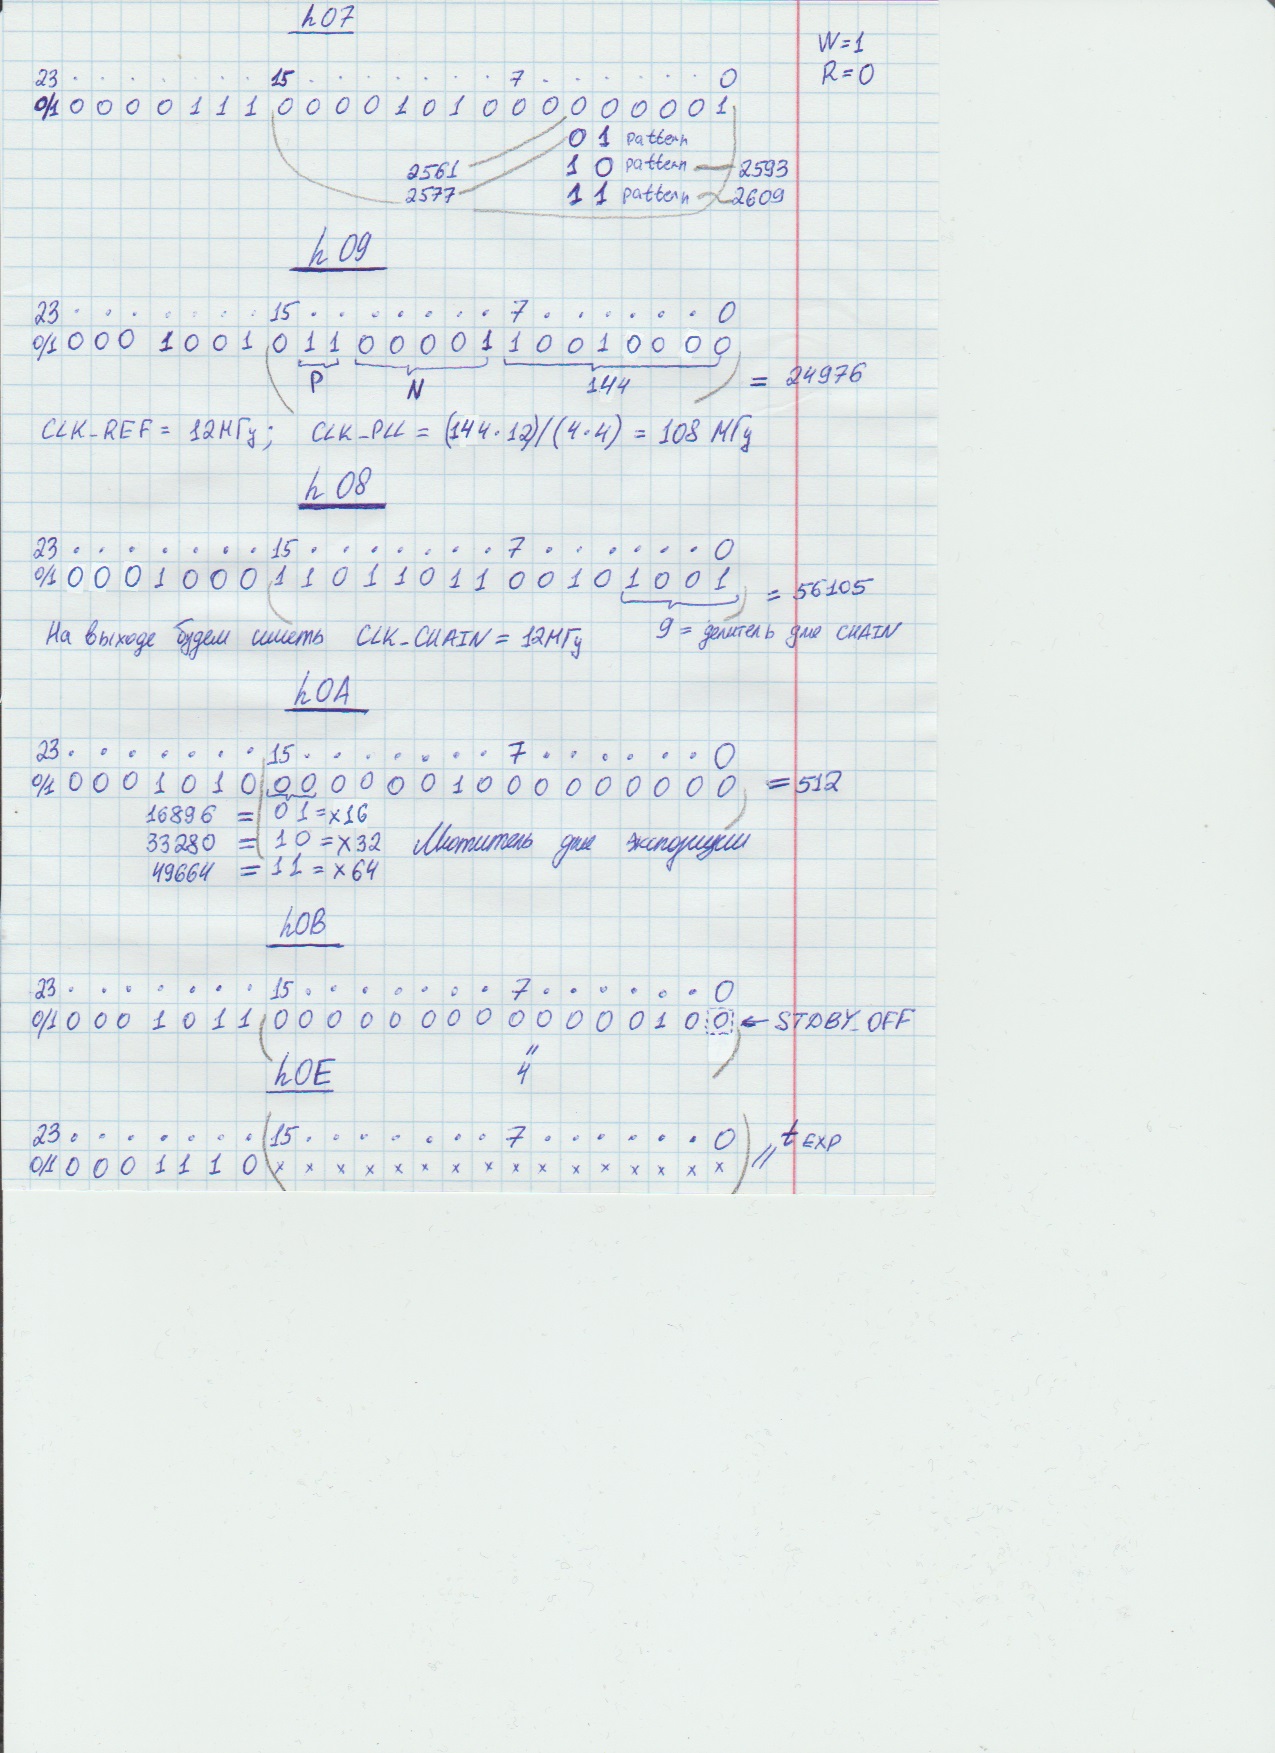 h07
W=1
R=0
23 . . . . . . . 15 . . . . . . . 7 . . . . . . 0
0/1 0 0 0 0 1 1 1 0 0 0 0 1 0 1 0 0 0 0 0 0 0 0 1
0 1 pattern
2561 1 0 pattern 2593
2577 1 1 pattern 2609
h09
23 . . . . . . . 15 . . . . . . . 7 . . . . . . 0
0/1 0 0 0 1 0 0 1 0 1 1 0 0 0 0 1 1 0 0 1 0 0 0 0
P N 144 = 24976
CLK_REF = 12МГц; CLK_PLL = (144·12)/(4·4) = 108 МГц
h08
23 . . . . . . . 15 . . . . . . . 7 . . . . . . 0
0/1 0 0 0 1 0 0 0 1 1 0 1 1 0 1 1 0 0 1 0 1 0 0 1 = 56105
На выходе будем иметь CLK_CHAIN = 12МГц 9 = делитель для CHAIN
h0A
23 . . . . . . . 15 . . . . . . . 7 . . . . . . 0
0/1 0 0 0 1 0 1 0 0 0 0 0 0 0 1 0 0 0 0 0 0 0 0 0 = 512
16896 = 0 1 = x16
33280 = 1 0 = x32 Множитель для экспозиции
49664 = 1 1 = x64
h0B
23 . . . . . . . 15 . . . . . . . 7 . . . . . . 0
0/1 0 0 0 1 0 1 1 0 0 0 0 0 0 0 0 0 0 0 0 0 1 0 0 ← STDBY_OFF
"
4
h0E
23 . . . . . . . 15 . . . . . . . 7 . . . . . . 0 t EXP
0/1 0 0 0 1 1 1 0 x x x x x x x x x x x x x x x x //